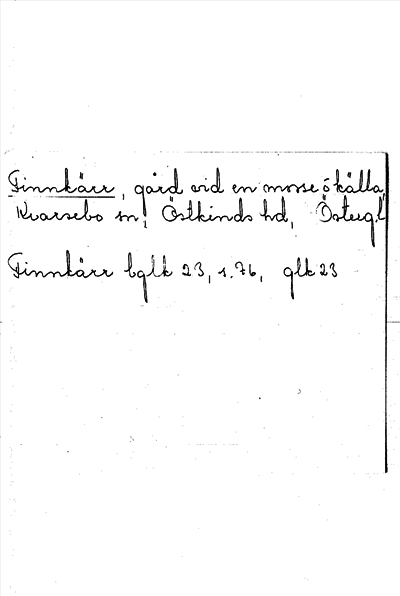 Finnkärr, gård vid en mosse o källa,
Kvarsebo sn, Östkinds hd, Östergl
Finnkärr bglk 23, s. 76, glk 23